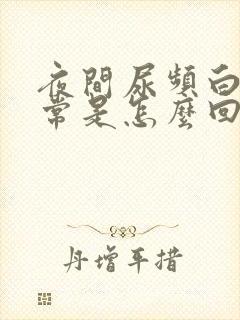 夜間尿頻白
常是怎麼回
丹增平措